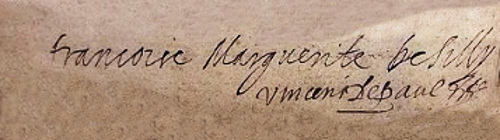 francoise Marguerite de Silly
Vincent Depaul